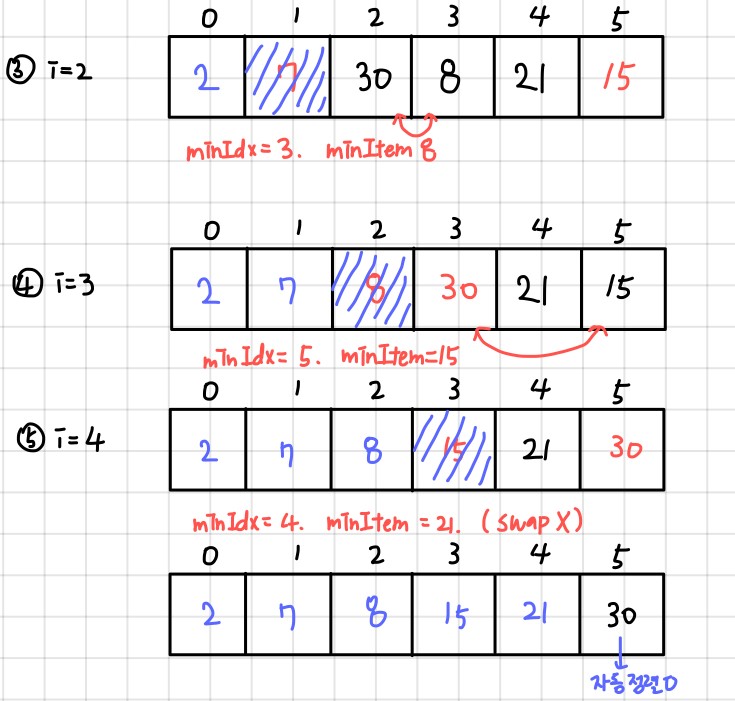 0 1 2 3 4 5
③ i=2 2 7 30 8 21 15
minIdx=3. minItem 8
0 1 2 3 4 5
④ i=3 2 7 8 30 21 15
minIdx=5. minItem=15
0 1 2 3 4 5
⑤ i=4 2 7 8 15 21 30
minIdx=4. minItem=21. (swap X)
0 1 2 3 4 5
2 7 8 15 21 30
자동정렬O